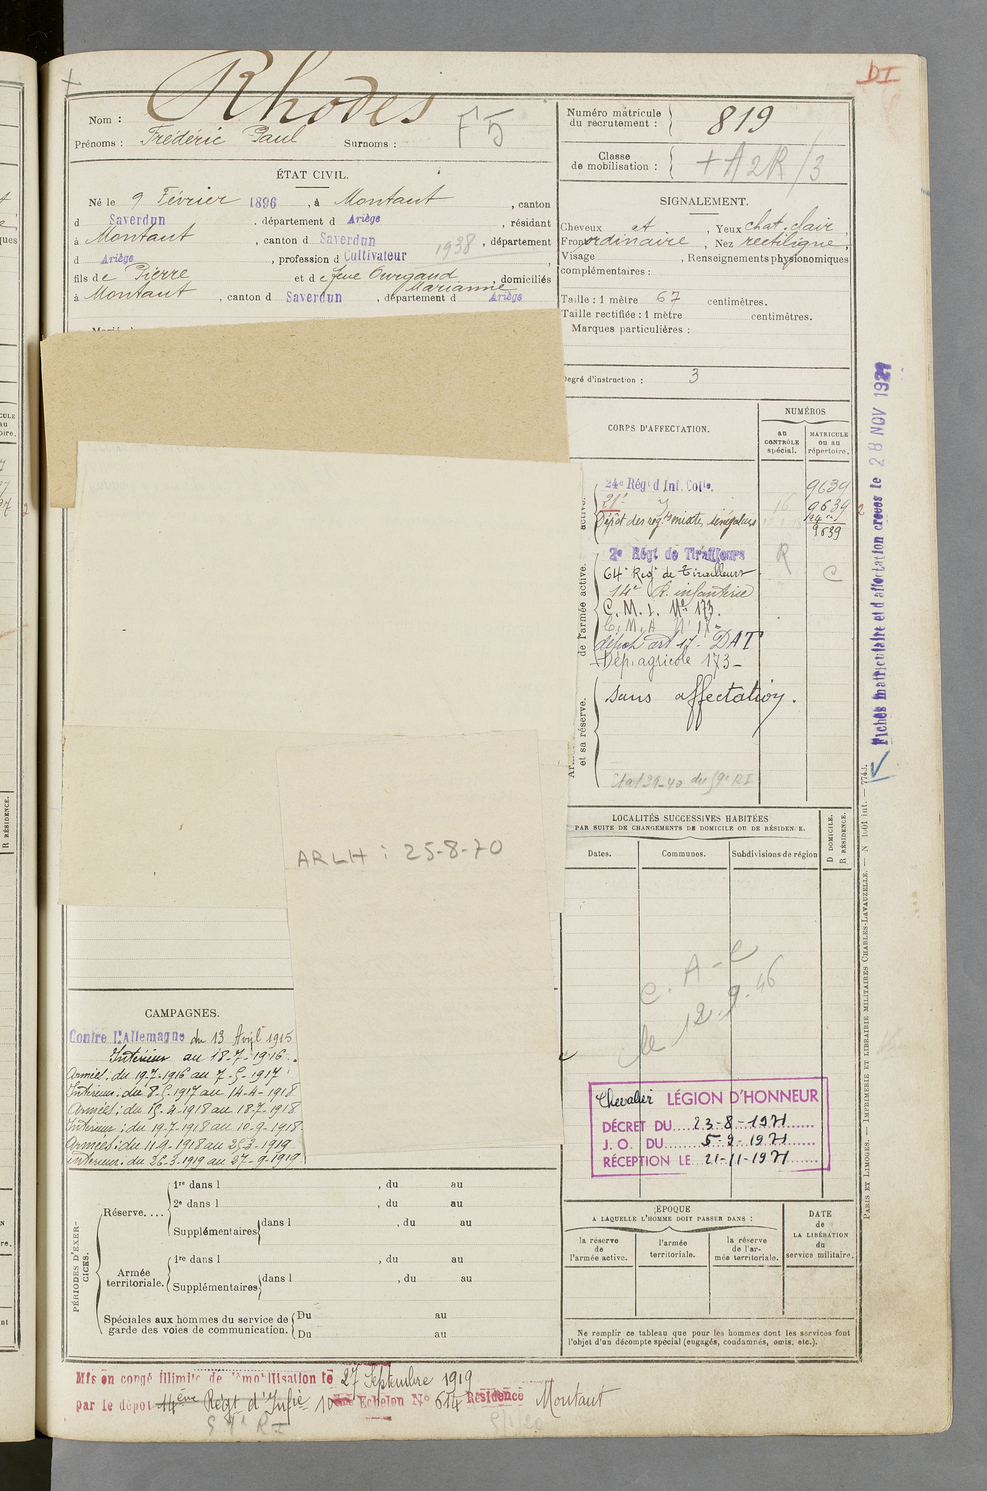 DI
Nom : Rhodes
Prénoms : Frédéric Paul Surnoms :
F5
ÉTAT CIVIL.
Né le 9 Février 1896, à Montaut, canton
d Saverdun, département d Ariège, résidant
à Montaut, canton d Saverdun, département
1938
d Ariège, profession d Cultivateur
fils de Pierre et de feue Ourgaud Marianne, domiciliés
à Montaut, canton d Saverdun, département d Ariège
Numéro matricule
du recrutement : 819
Classe
de mobilisation : + A2R/3
SIGNALEMENT.
Cheveux et, Yeux chat. clair,
Front ordinaire, Nez rectiligne,
Visage, Renseignements physionomiques
complémentaires :
Taille : 1 mètre 67 centimètres.
Taille rectifiée : 1 mètre centimètres.
Marques particulières :
Degré d'instruction : 3
CORPS D'AFFECTATION.
NUMÉROS
au
CONTRÔLE
spécial.
MATRICULE
ou au
répertoire.
24e Régt d Inf. Colle. 9639
16 9639
Dépôt des régts mixtes sénégalais
9639
active.
2e Régt de Tirailleurs R
64e Régt de Tirailleurs C
14e R. infanterie
C. M. I. No 173.
dépôt art 17 - DAT
Dép. agricole 173 -
de l'armée active.
sans affectation.
et sa réserve.
Fiches matriculaire et d'affectation creees le 28 NOV 1921
ARLH : 25-8-70
LOCALITÉS SUCCESSIVES HABITÉES
PAR SUITE DE CHANGEMENTS DE DOMICILE OU DE RÉSIDENCE.
Dates. Communes. Subdivisions de région
D DOMICILE.
R RÉSIDENCE.
C. A-C
le 12.9.46
CAMPAGNES.
Contre L'Allemagne du 13 Avril 1915
Intérieur au 18-7-1916.
Armées: du 19-7-1916 au 7-5-1917
Intérieur: du 8-5-1917 au 14-4-1918
Armées: du 15-4-1918 au 18-7-1918
Intérieur: du 19-7-1918 au 10-9-1918
Armées: du 11-9-1918 au 25-3-1919
Intérieur: du 26-3-1919 au 27-9-1919
Chevalier LÉGION D'HONNEUR
DÉCRET DU 23-8-1971
J. O. DU 5-9-1971
RÉCEPTION LE 21-11-1971
PÉRIODES D'EXERCICES.
Réserve....
1re dans l , du au
2e dans l , du au
Supplémentaires dans l , du au
Armée
territoriale.
1re dans l , du au
Supplémentaires dans l , du au
Spéciales aux hommes du service de
garde des voies de communication.
Du au
Du au
ÉPOQUE
A LAQUELLE L'HOMME DOIT PASSER DANS :
la réserve
de
l'armée active.
l'armée
territoriale.
la réserve
de l'ar-
mée territoriale.
DATE
de
LA LIBÉRATION
du
service militaire.
Ne remplir ce tableau que pour les hommes dont les services font
l'objet d'un décompte spécial (engagés, condamnés, omis, etc.).
PARIS ET LIMOGES. — IMPRIMERIE ET LIBRAIRIE MILITAIRES CHARLES-LAVAUZELLE. —
Mis en congé illimité de démobilisation le 27 Septembre 1919
par le dépôt 14ème Régt d'Infie 10ème Echelon No 614 Résidence Montaut
59e RI